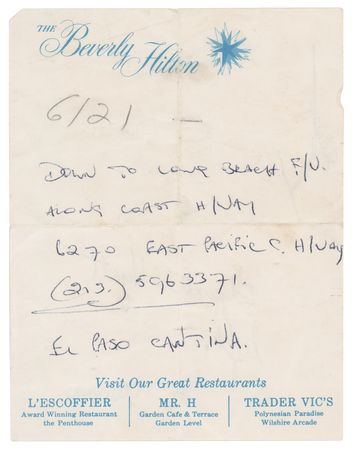 THE Beverly Hilton
6/21 —
DOWN TO LONG BEACH F/W.
ALONG COAST H/WAY
6270 EAST PACIFIC C. H/Way
(213.) 5963371.
EL PASO CANTINA.
Visit Our Great Restaurants
L'ESCOFFIER MR. H TRADER VIC'S
Award Winning Restaurant Garden Cafe & Terrace Polynesian Paradise
the Penthouse Garden Level Wilshire Arcade